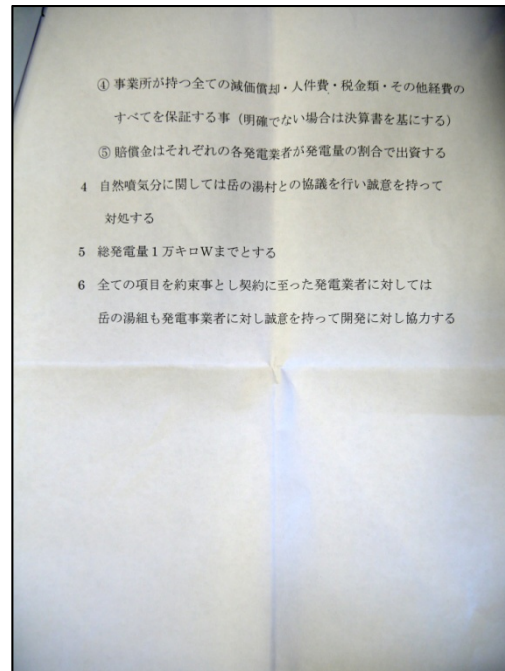 ④ 事業所が持つ全ての減価償却・人件費・税金類・その他経費の
すべてを保証する事（明確でない場合は決算書を基にする）
⑤ 賠償金はそれぞれの各発電業者が発電量の割合で出資する
4 自然噴気分に関しては岳の湯村との協議を行い誠意を持って
対処する
5 総発電量１万キロWまでとする
6 全ての項目を約束事とし契約に至った発電業者に対しては
岳の湯組も発電事業者に対し誠意を持って開発に対し協力する